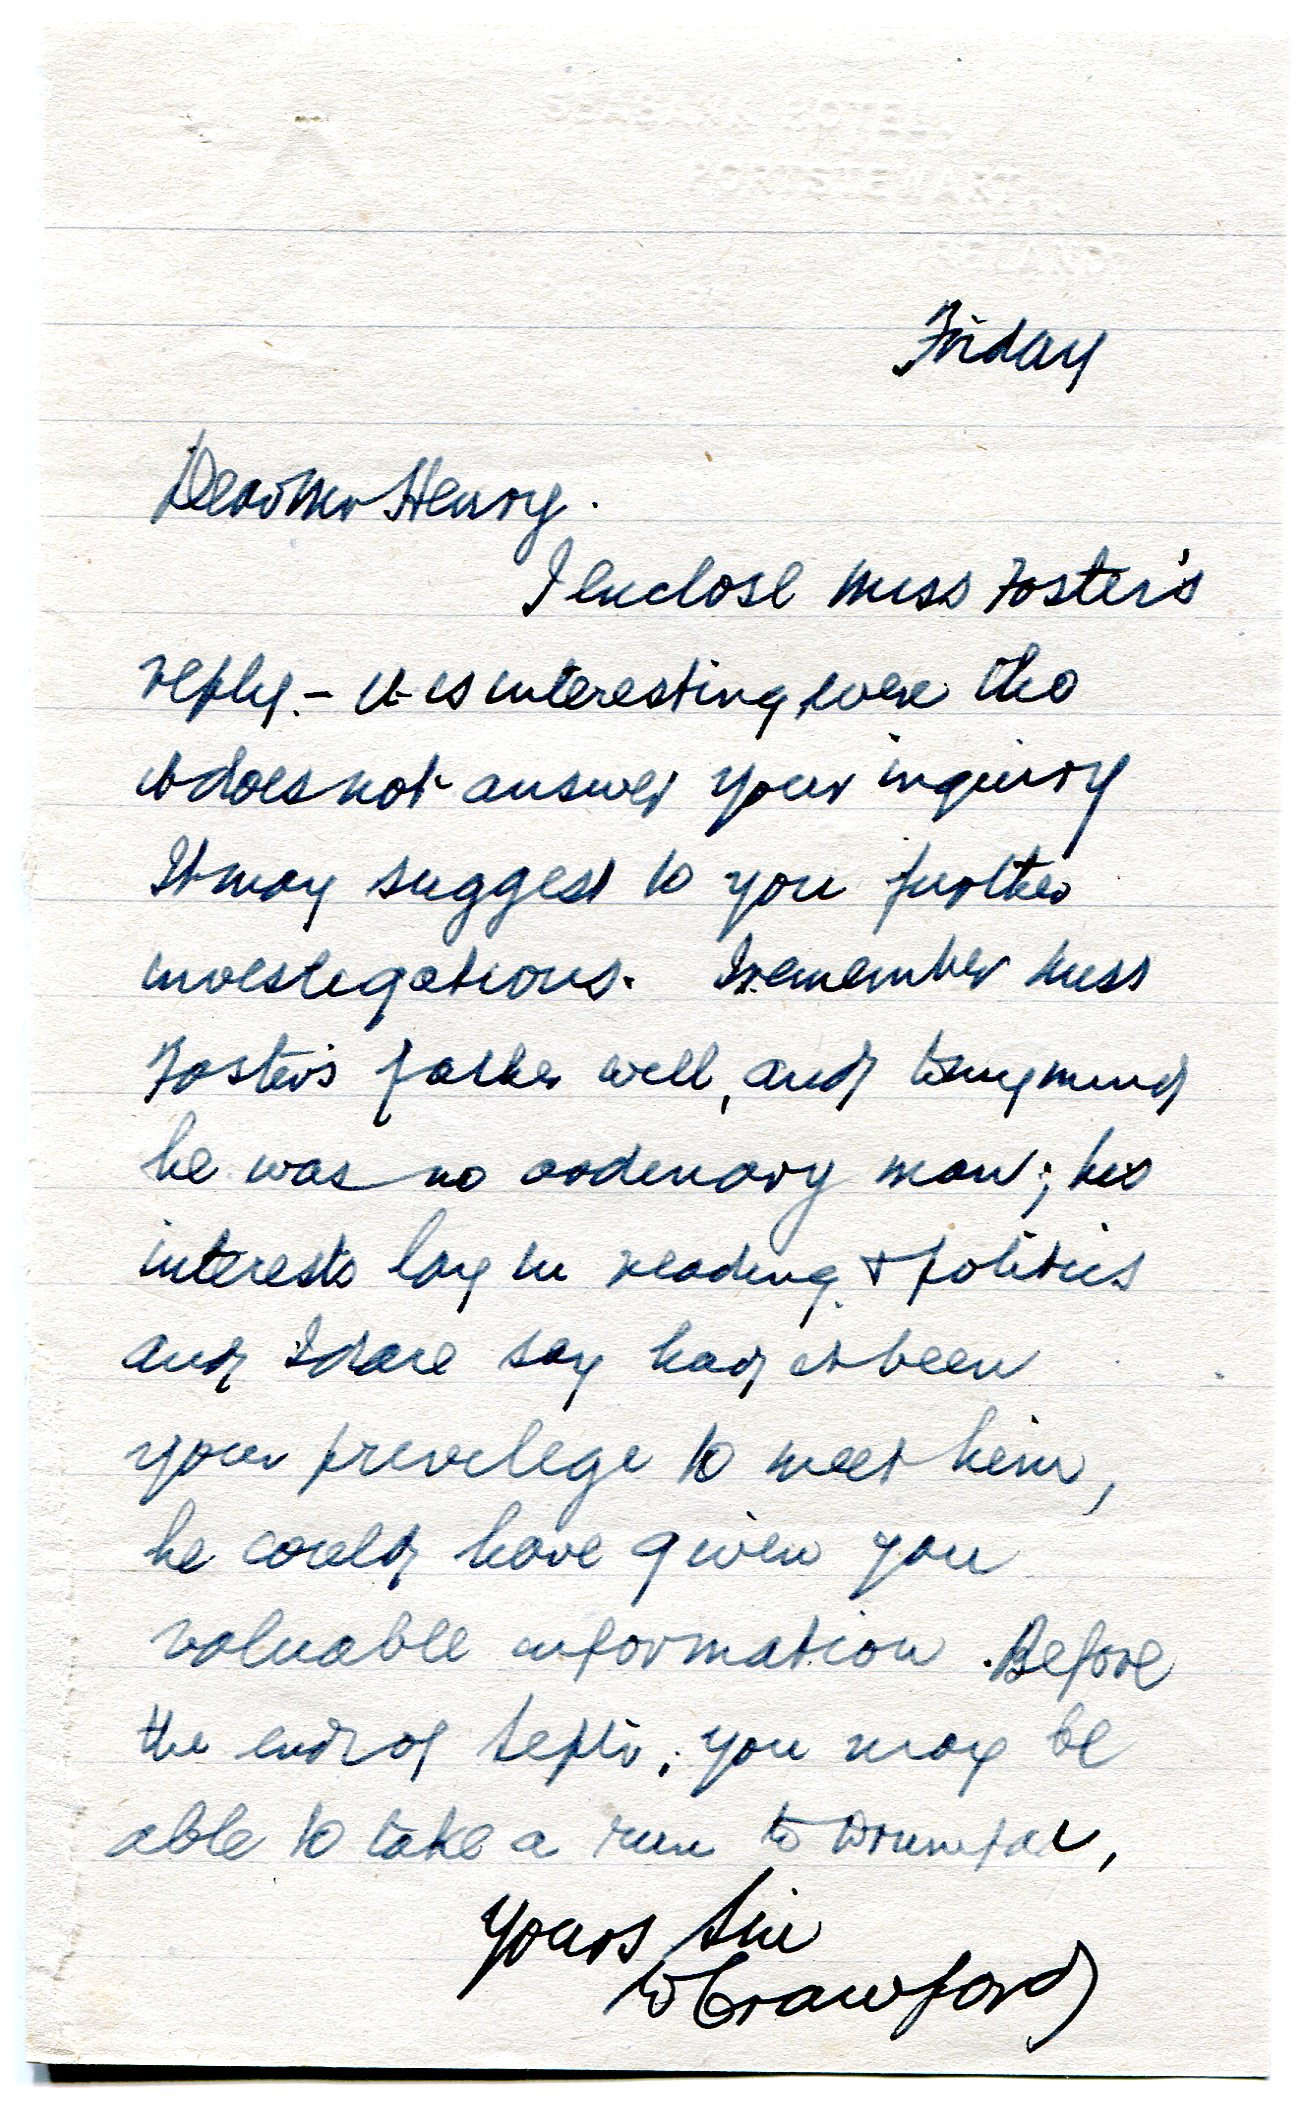 SEABANK HOTEL,
PORTSTEWART,
IRELAND.
Friday
Dear Mr Henry.
I enclose Miss Foster's
reply. - It is interesting, even tho
it does not answer your inquiry
It may suggest to you further
investigations. I remember Miss
Foster's father well, and to my mind
he was no ordinary man; his
interests lay in reading & politics
and I dare say had it been
your privilege to meet him,
he could have given you
valuable information. Before
the end of Septr. you may be
able to take a run to
Yours Sin
W Crawford